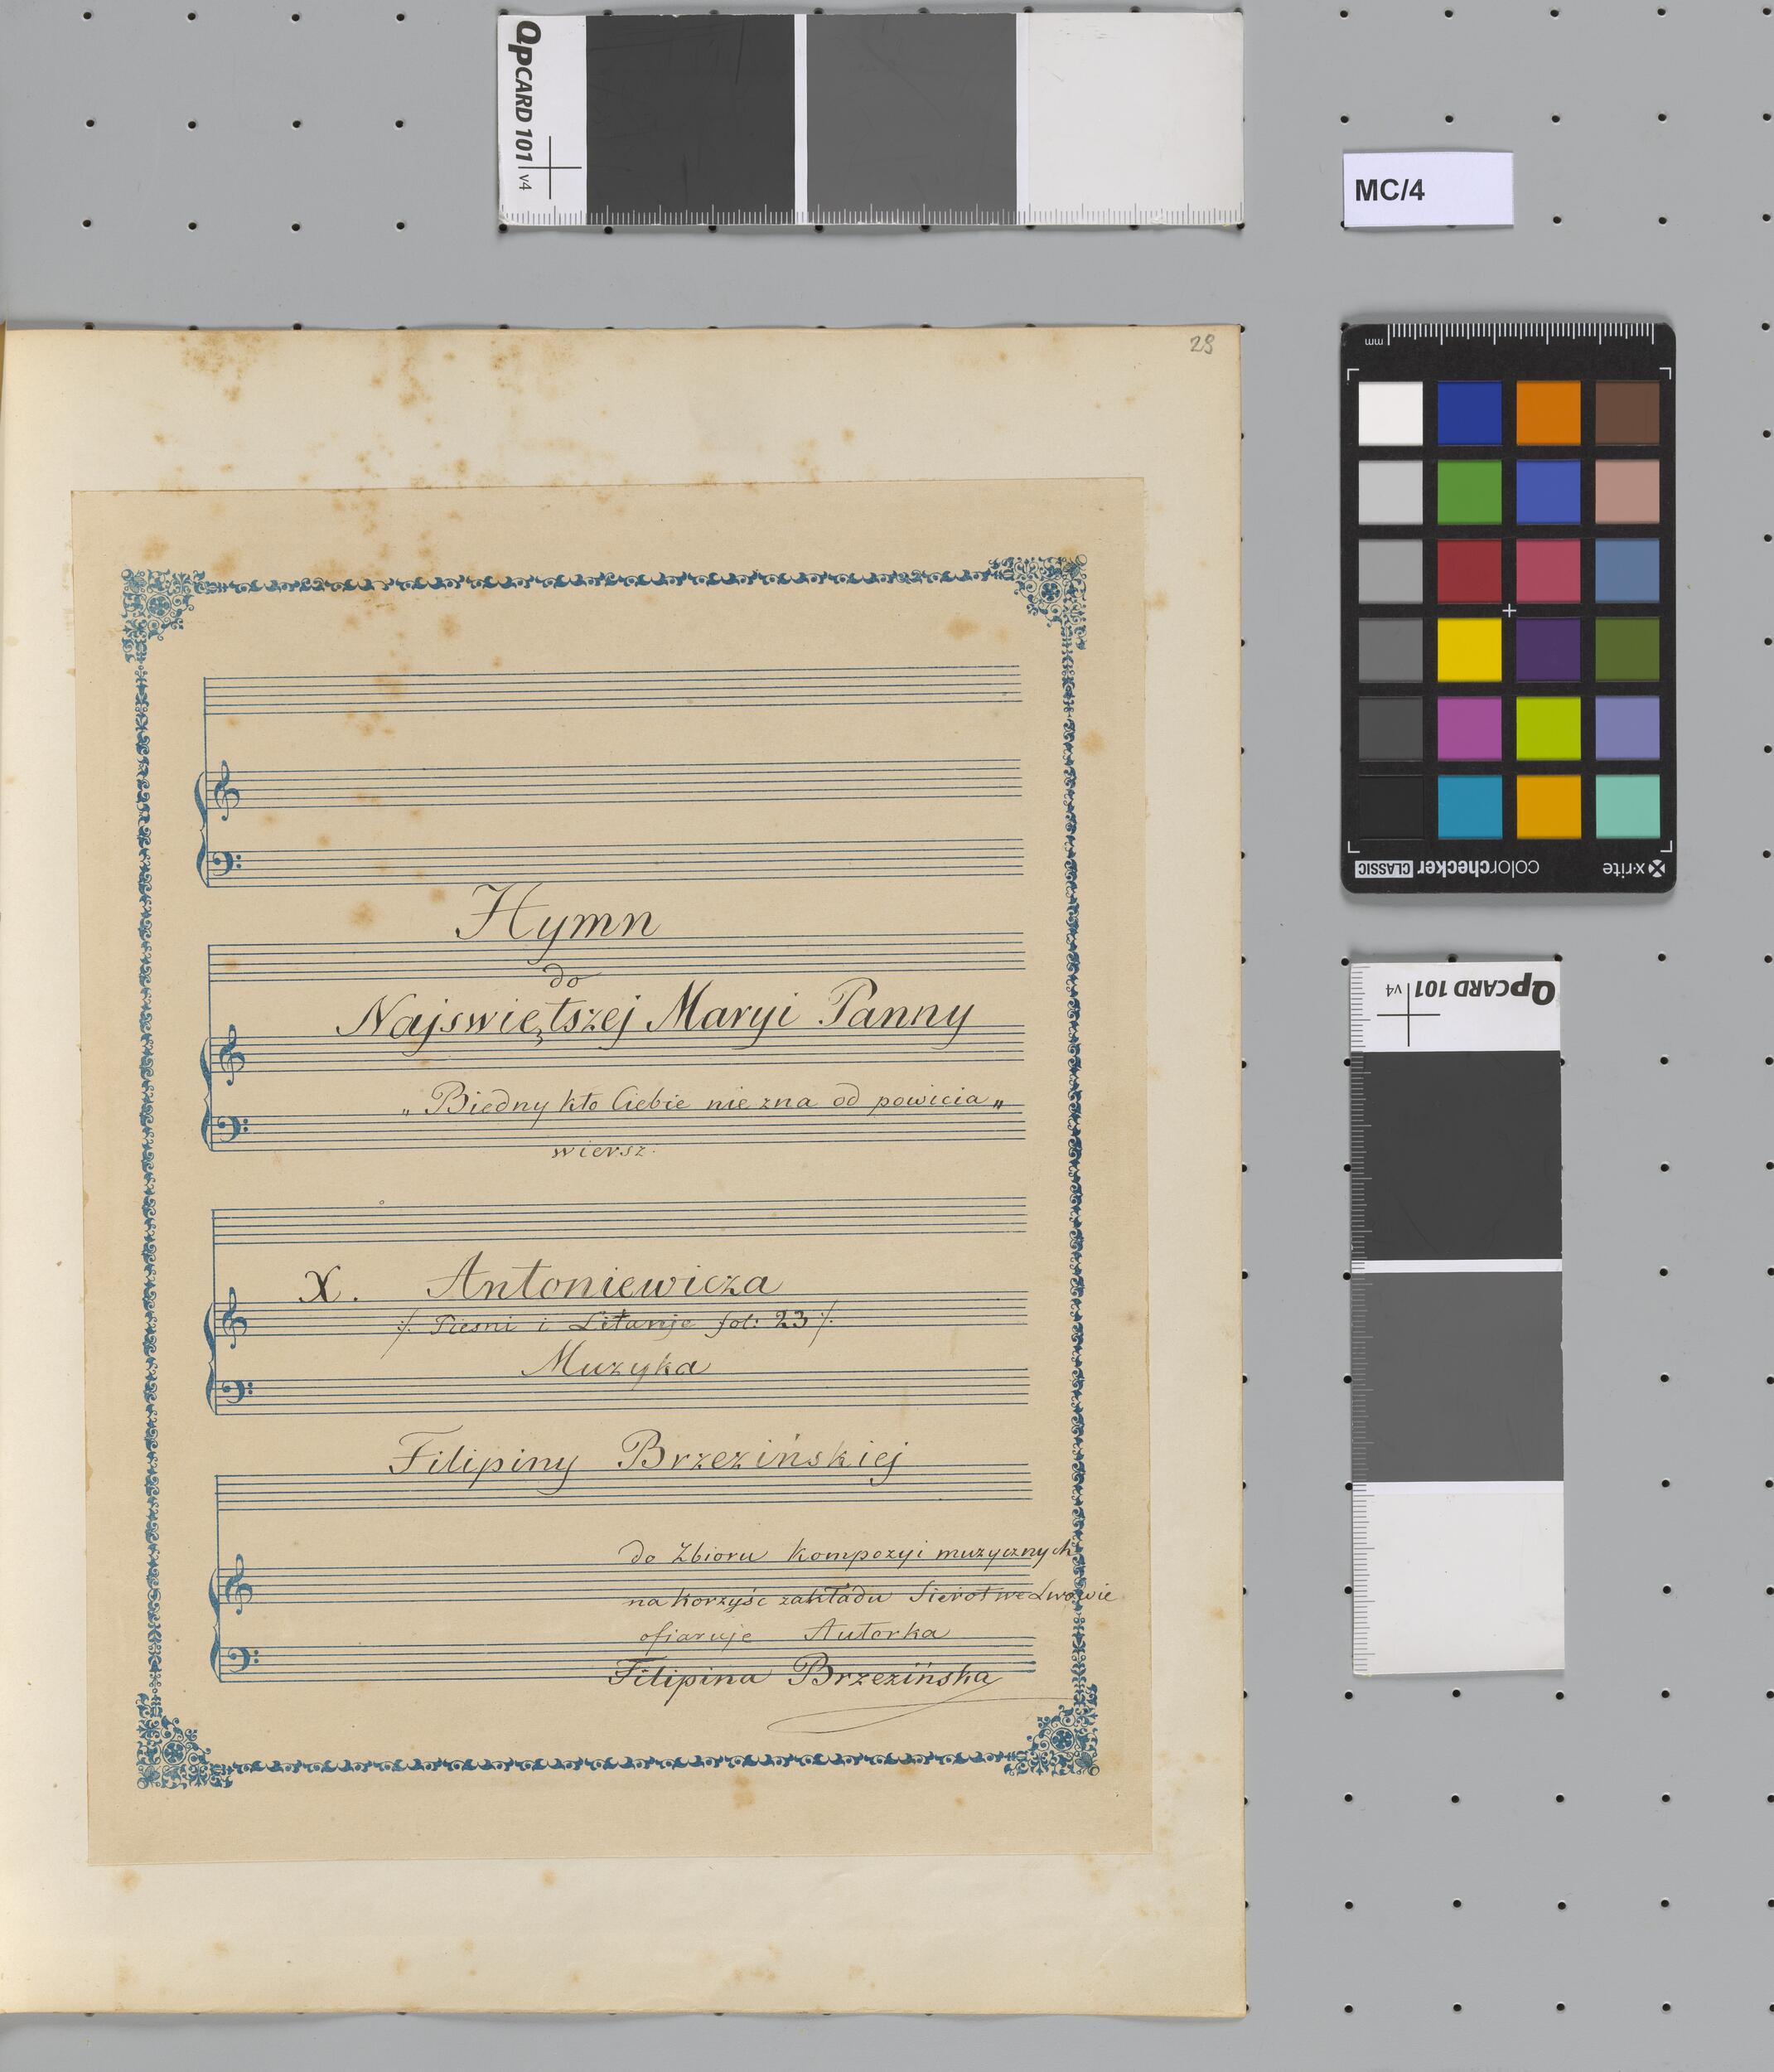 QpCARD 101 v4
MC/4
29
mm
colorchecker CLASSIC
x-rite
QpCARD 101 v4
Hymn
do
Najswiętszej Maryi Panny
„Biedny kto Ciebie nie zna od powicia„
wiersz.
X. Antoniewicza
/. Piesni i Litanje fol: 23 /.
Muzyka
Filipiny Brzezińskiej
do Zbioru Kompozyi muzycznych
na korzyść zakładu Sierot we Lwowie
ofiaruje Autorka
Filipina Brzezińska